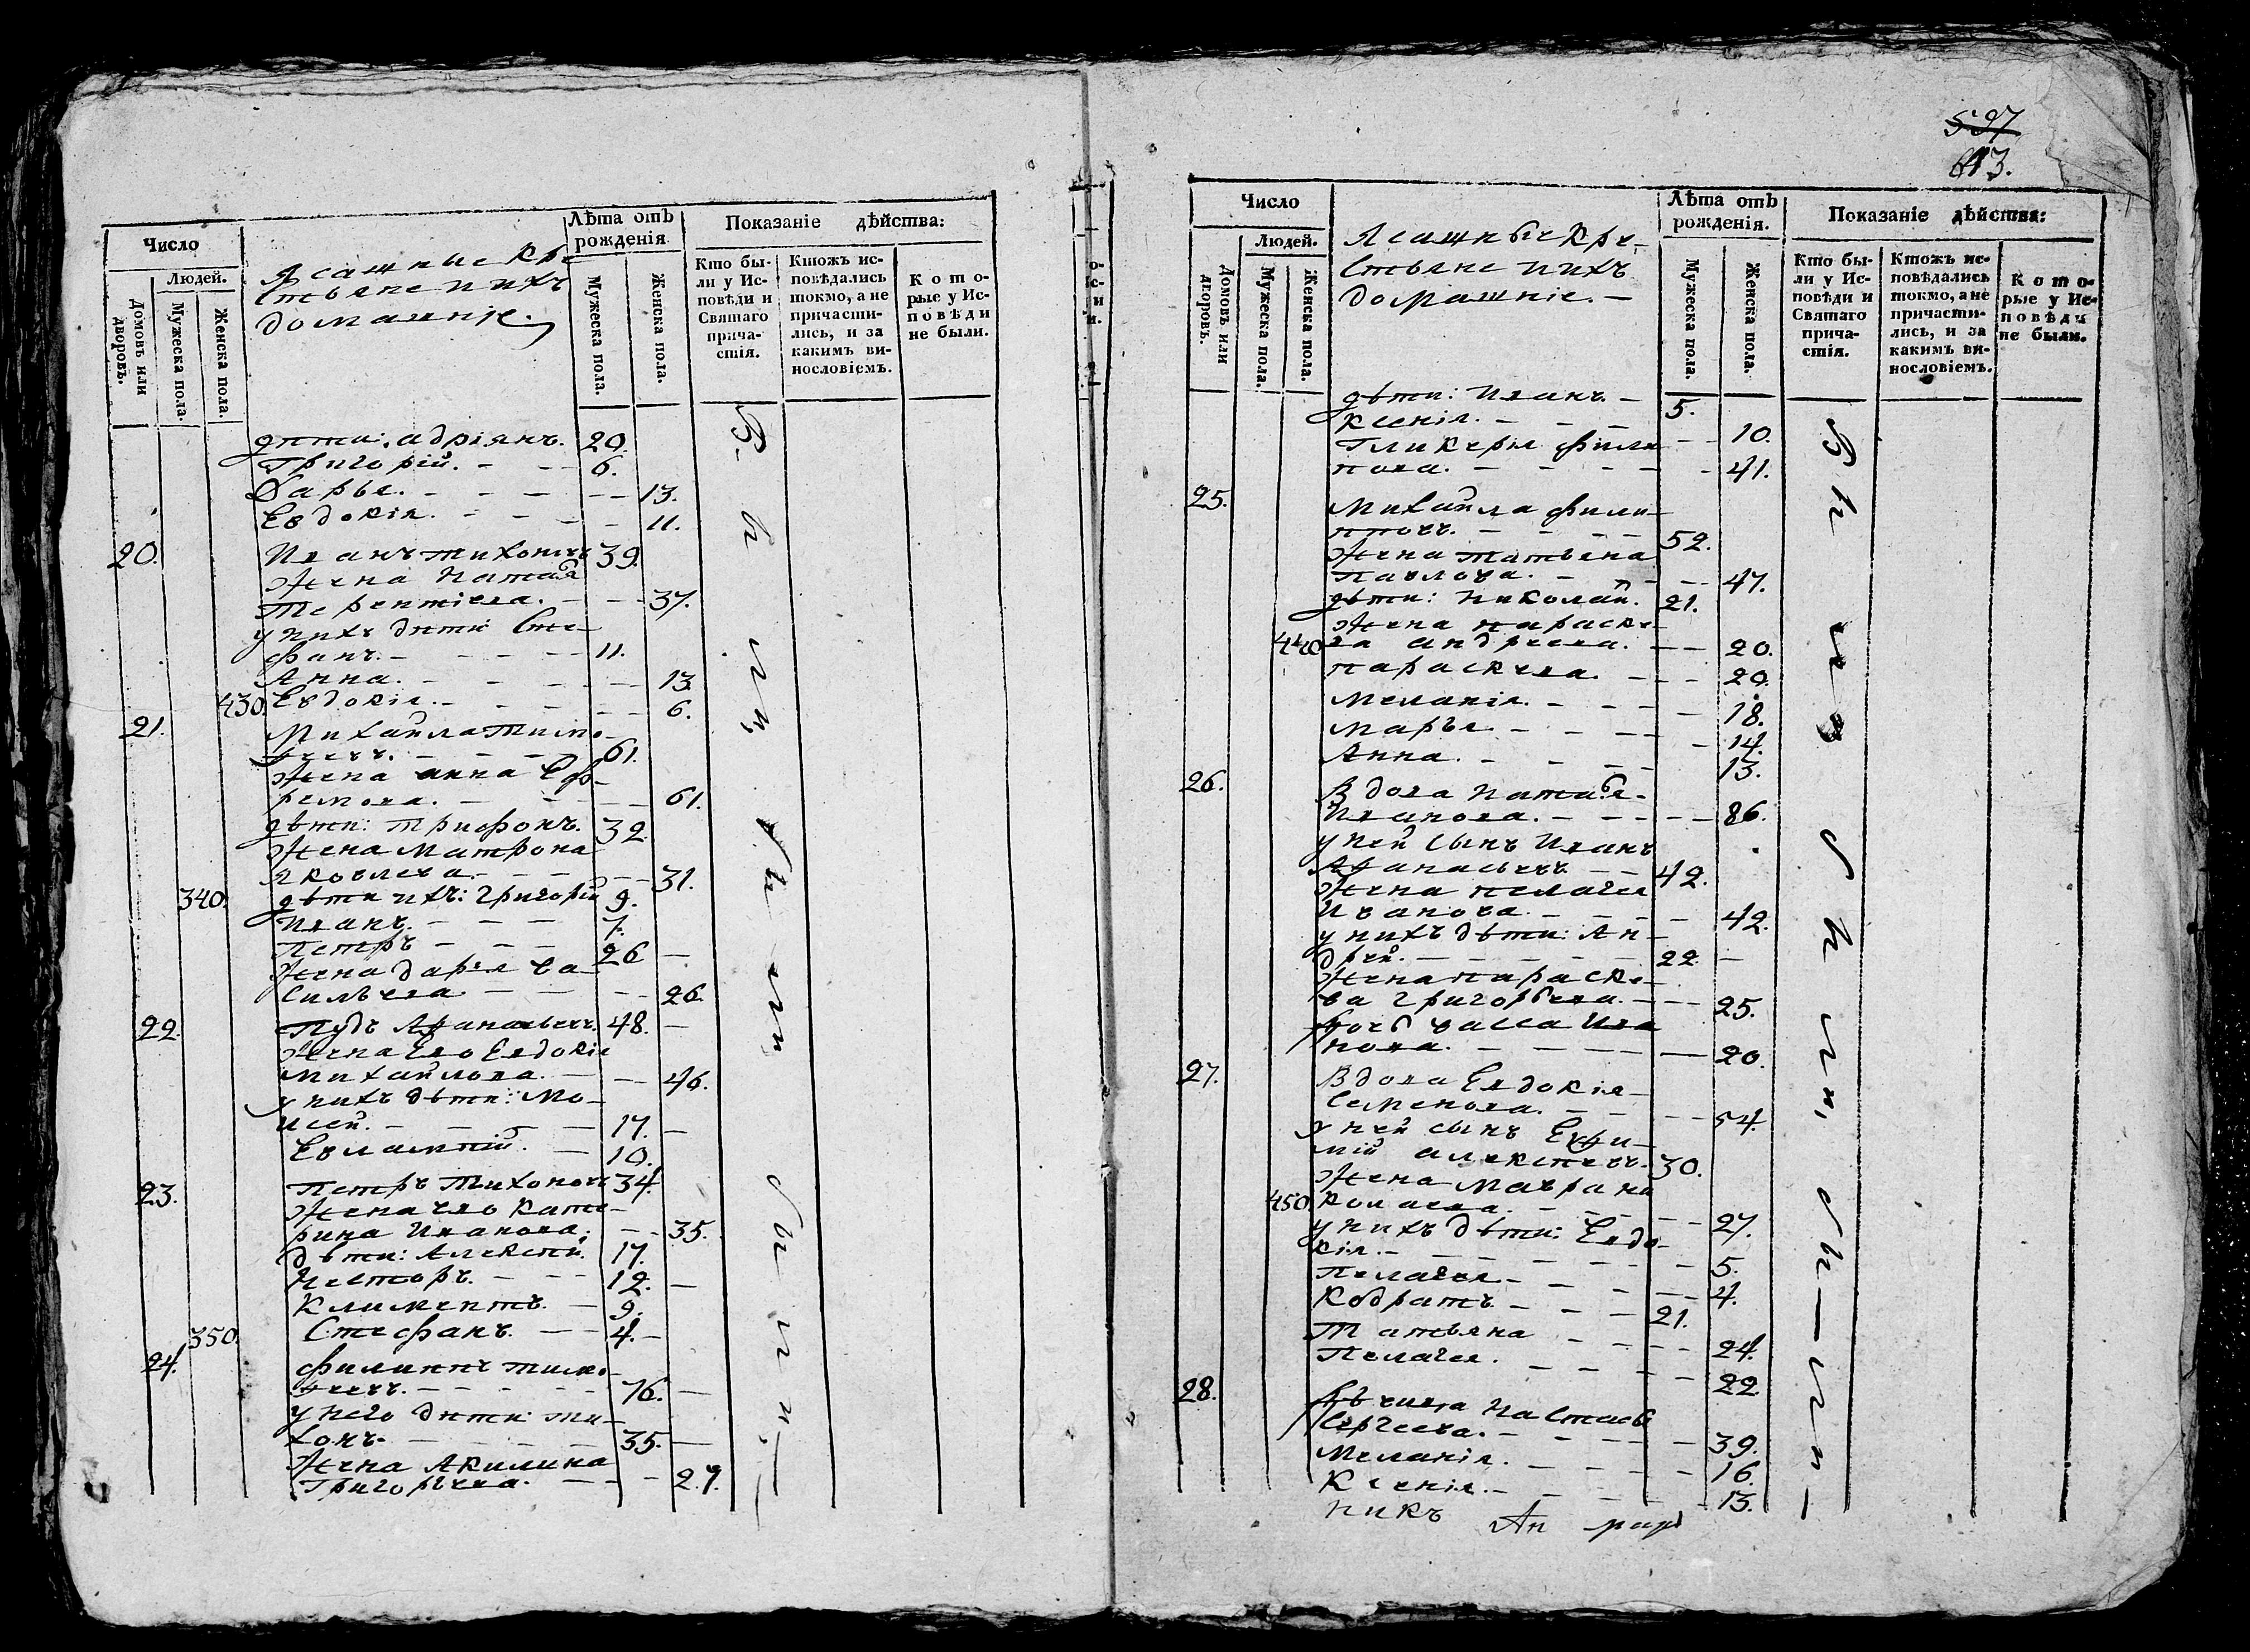 Число
Людей.
Домовъ или дворовъ.
Мужеска пола.
Женска пола.
Ясашные кре
стьяне и ихъ
домашніе.
Лѣта отъ рожденія
Мужеска пола.
Женска пола.
Показаніе дѣйства:
Кто бы-
ли у Ис-
повѣди и
Святаго
прича-
стія.
Ктожъ ис-
повѣдались
токмо, а не
причасти-
лись, и за
какимъ ви-
нословіемъ.
Кото-
рые у Ис-
повѣди
не были.
дѣти: Адріянъ. 20.
Григорій. - - - 6.
Дарья. - - - - - 13.
Евдокія. - - - - 11.
20. Иванъ Тихоновъ 39.
Жена Наталья
Терентіева. - - - 37.
у нихъ дѣти Сте-
фанъ. - - - - - 11.
Анна. - - - - - 13.
430. Евдокія. - - - - 6.
21. Михайла Тимо-
феевъ. - - - - 61.
Жена Анна Еф-
ремова. - - - - 61.
дѣти: Трифонъ. 32.
Жена Матрона
Яковлева. - - - - 31.
340. дѣти ихъ: Григорій 9.
Иванъ. - - - 7.
Петръ - - - 26 -
Жена Дарья Ва-
сильева. - - - - 26.
22. Пудъ Афанасьевъ. 48. -
Жена Его Евдокія
Михайлова. - - - 46.
у нихъ дѣти: Мо-
исей. - - - - - 17. -
Евлампій. - 10.
23. Петръ Тихоновъ 34.
Жена его Кате-
рина Иванова; - - 35.
дѣти: Алексѣй. 17.
Несторъ. - - - 12. -
Климентъ. - 9.
350. Стефанъ. - - 4. -
24. Филиппъ Тимо-
феевъ. - - - - - 76. -
у него дѣти: Ти-
хонъ. - - - - - 35. -
Жена Акилина
Григорьева. - - - 27.
597
613.
Число
Людей.
Домовъ или дворовъ.
Мужеска пола.
Женска пола.
Ясашные кре-
стьяне и ихъ
домашніе. -
Лѣта отъ рожденія.
Мужеска пола.
Женска пола.
Показаніе дѣйства:
Кто бы-
ли у Ис-
повѣди и
Святаго
прича-
стія.
Ктожъ ис-
повѣдались
токмо, а не
причасти-
лись, и за
какимъ ви-
нословіемъ.
Кото-
рые у Ис-
повѣди
не были.
дѣти: Иванъ. - 5.
Ксенія. - - - - 10.
Гликерья Фили
пова. - - - - - 41.
25. Михайла Фили-
повъ. - - - - 52.
Жена Татьяна
Павлова. - - - - 47.
дѣти: Николай. 21.
Жена Параске-
440 ва Андреева. - - 20.
Параскева. - - - 20.
Меланія. - - - - 18.
Марья. - - - - - 14.
Анна. - - - - 13.
26. Вдова Наталья.
Иванова. - - - - - 86.
у ней сынъ Иванъ
Афанасьевъ - - 42.
Жена Пелагея
Иванова. - - - - - 42.
у нихъ дѣти: Ан-
дрей. - - - - - 22. -
Жена Параске-
ва Григорьева. - - - 25.
дочь Васса Ива
нова. - - - - - 20.
27. Вдова Евдокія
Семенова. - - - - 54.
у ней сынъ Ефи-
мій Алексѣевъ. 30.
Жена Маврана
450. - - - - 27.
у нихъ дѣти: Евдо-
кія. - - - - - - 5.
Пелагея - - - - - 4.
Кодратъ - - - 21.
Татьяна - - - - 24.
Пелагея. - - - - 22.
28. Дѣвица Настасья
Сергеева. - - - - - 39.
Меланія. - - - - - 16.
Ксенія. - - - - - 13.
никъ Ан